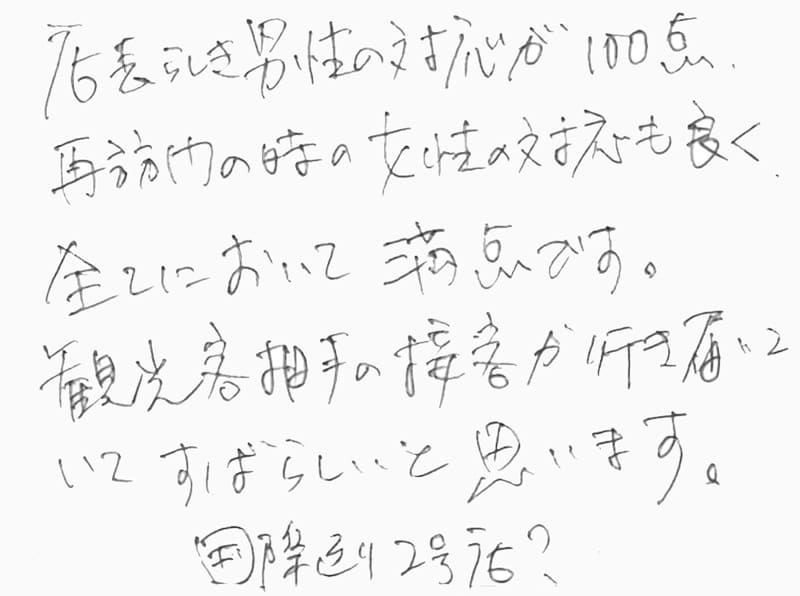 店長らしき男性の対応が100点、
再訪問の時の女性の対応も良く、
全てにおいて満点です。
観光客相手の接客が行き届いて
いてすばらしいと思います。
国際通り2号店?